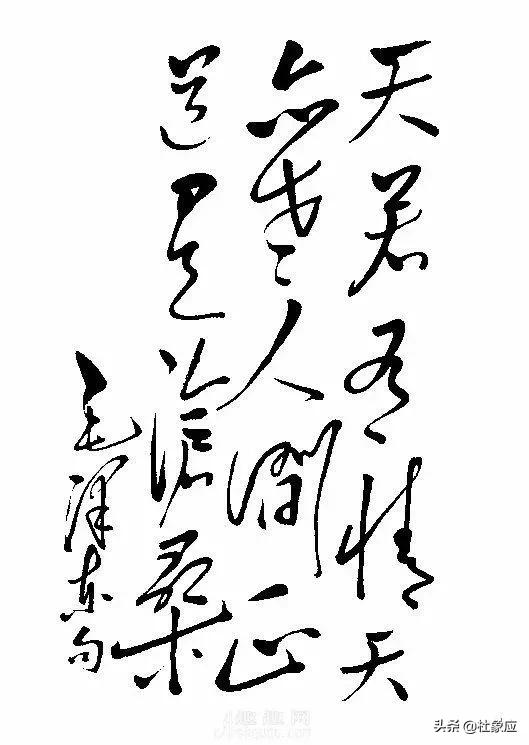 天若有情天
亦老人間正
道是滄桑
毛泽东句
头条 @杜象应